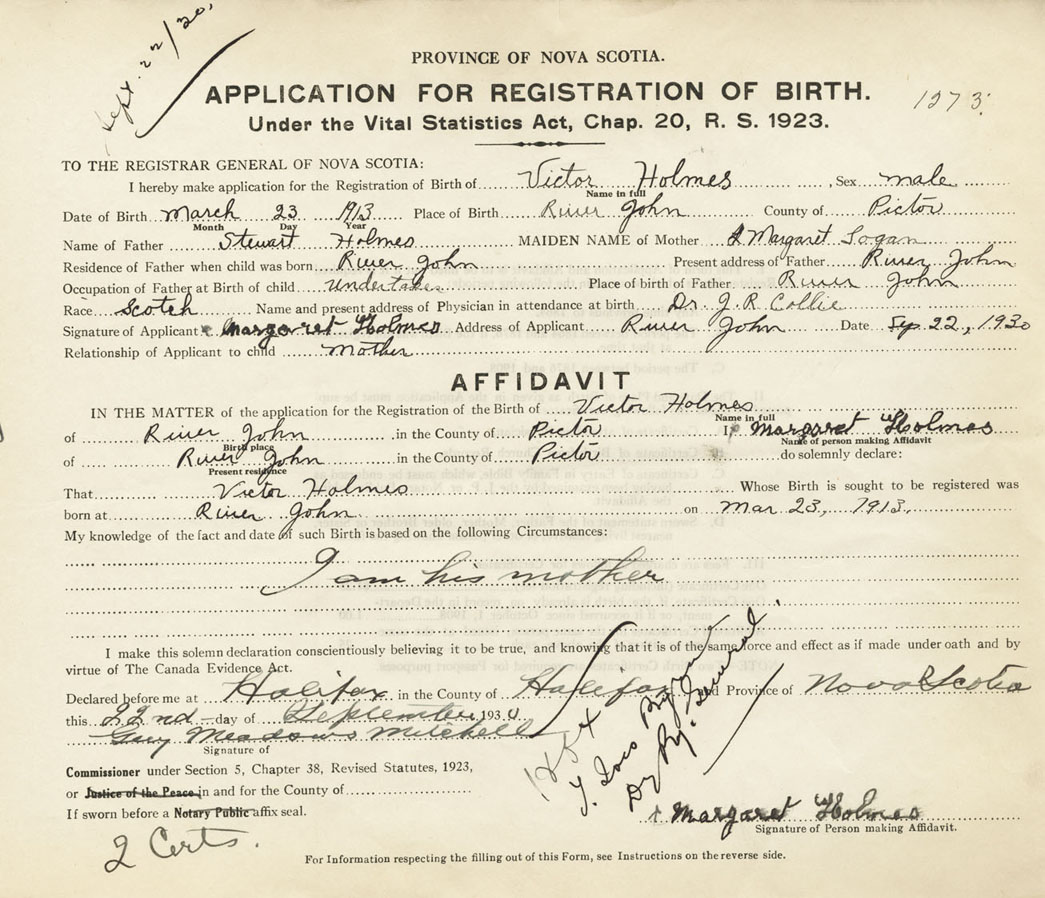 Sept. 22/30.
PROVINCE OF NOVA SCOTIA.
APPLICATION FOR REGISTRATION OF BIRTH.
1273
Under the Vital Statistics Act, Chap. 20, R. S. 1923.
TO THE REGISTRAR GENERAL OF NOVA SCOTIA:
I hereby make application for the Registration of Birth of Victor Holmes, Sex male
Name in full
Date of Birth March 23 1913 Place of Birth River John County of Pictou
Month Day Year
Name of Father Stewart Holmes MAIDEN NAME of Mother Margaret Logan
Residence of Father when child was born River John Present address of Father River John
Occupation of Father at Birth of child Undertaker Place of birth of Father River John
Race Scotch Name and present address of Physician in attendance at birth Dr. J. R. Collie
Signature of Applicant Margaret Holmes Address of Applicant River John Date Sep. 22, 1930
Relationship of Applicant to child Mother
AFFIDAVIT
IN THE MATTER of the application for the Registration of the Birth of Victor Holmes
Name in full
of River John in the County of Pictou I, Margaret Holmes
Birth place Name of person making Affidavit
of River John in the County of Pictou do solemnly declare:
Present residence
That Victor Holmes Whose Birth is sought to be registered was
born at River John on Mar 23, 1913.
My knowledge of the fact and date of such Birth is based on the following Circumstances:
I am his mother
I make this solemn declaration conscientiously believing it to be true, and knowing that it is of the same force and effect as if made under oath and by
virtue of The Canada Evidence Act.
Declared before me at Halifax in the County of Halifax and Province of Nova Scotia
this 22nd day of September 1930
Guy Meadows Mitchell
Signature of
Commissioner under Section 5, Chapter 38, Revised Statutes, 1923,
or Justice of the Peace in and for the County of
If sworn before a Notary Public affix seal.
Margaret Holmes
Signature of Person making Affidavit.
2 Certs.
For Information respecting the filling out of this Form, see Instructions on the reverse side.